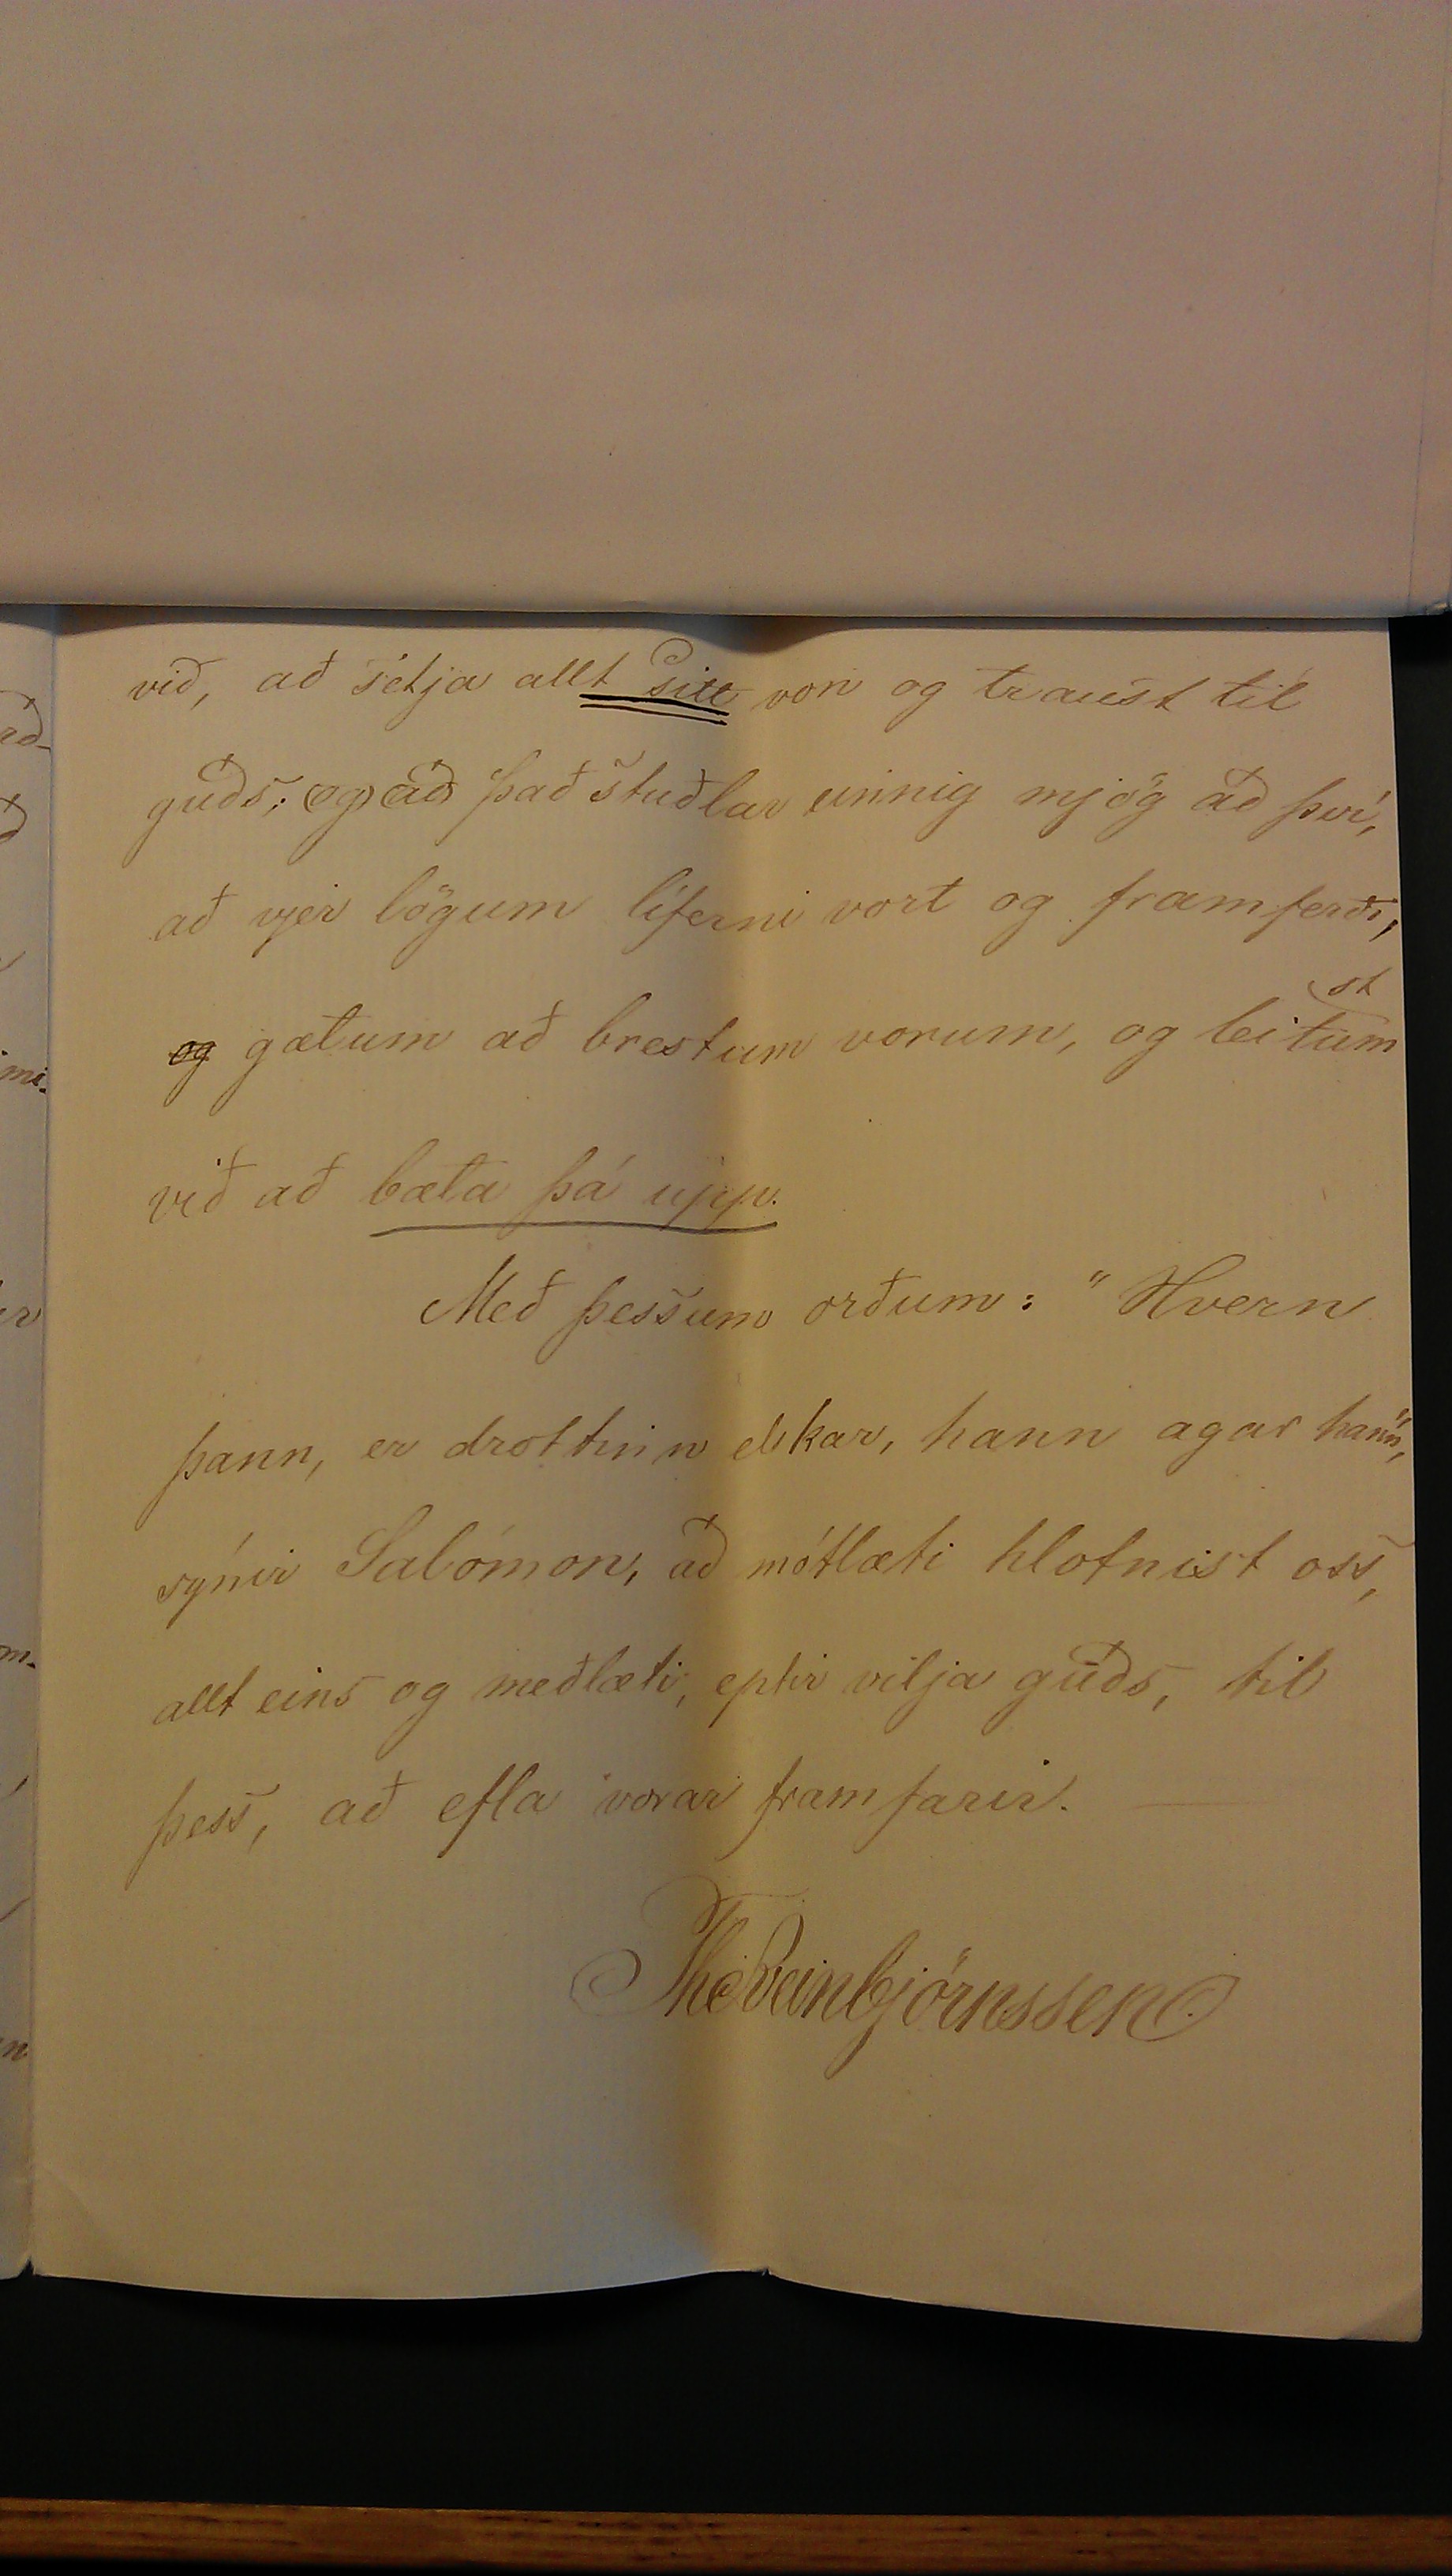 við, að setja allt sitt von og traust til
guðs; og að það stuðlar einnig mjög að því,
að vjer lögum líferni vort og framferði,
og gætum að brestum vorum, og leitum
st
við að bæta þá upp.
Með þessum orðum: "Hvern
þann, er drottinn elskar, hann agar hann",
sýnir Salómon, að mótlæti hlotnist oss,
allt eins og meðlæti, eptir vilja guðs, til
þess, að efla vorar framfarir. —
ThSveinbjörnssen.